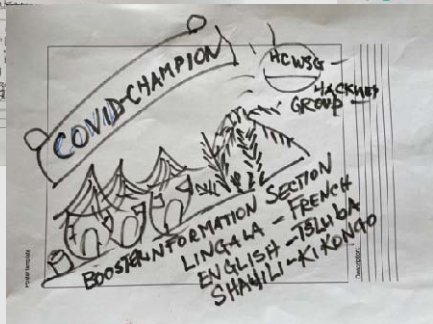 COVID-CHAMPION
HCWSG
HACKNEY
GROUP
BOOSTER INFORMATION SECTION
LINGALA - FRENCH
ENGLISH - TSLUBA
SHAYILI - KIKONGO